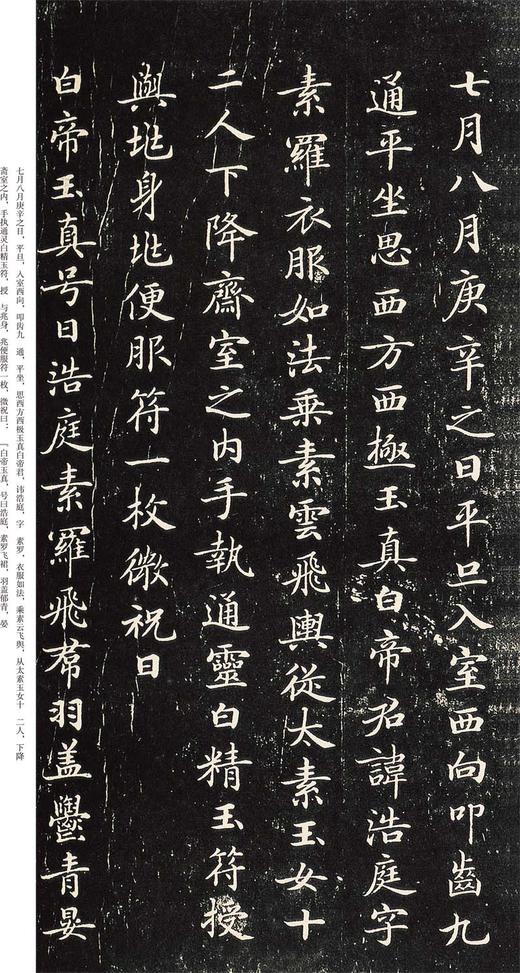 七月八月庚辛之日平旦入室西向叩齒九
通平坐思西方西極玉真白帝君諱浩庭字
素羅衣服如法乘素雲飛輿從太素玉女十
二人下降齋室之內手執通靈白精玉符授
與兆身兆便服符一枚微祝曰
白帝玉真号曰浩庭素羅飛帬羽盖鬱青晏
七月八月庚辛之日，平旦，入室西向，叩齿九 通，平坐，思西方西极玉真白帝君，讳浩庭，字 素罗，衣服如法，乘素云飞舆，从太素玉女十 二人，下降
斋室之内，手执通灵白精玉符，授 与兆身，兆便服符一枚，微祝曰：「白帝玉真，号曰浩庭，素罗飞裙，羽盖郁青，晏